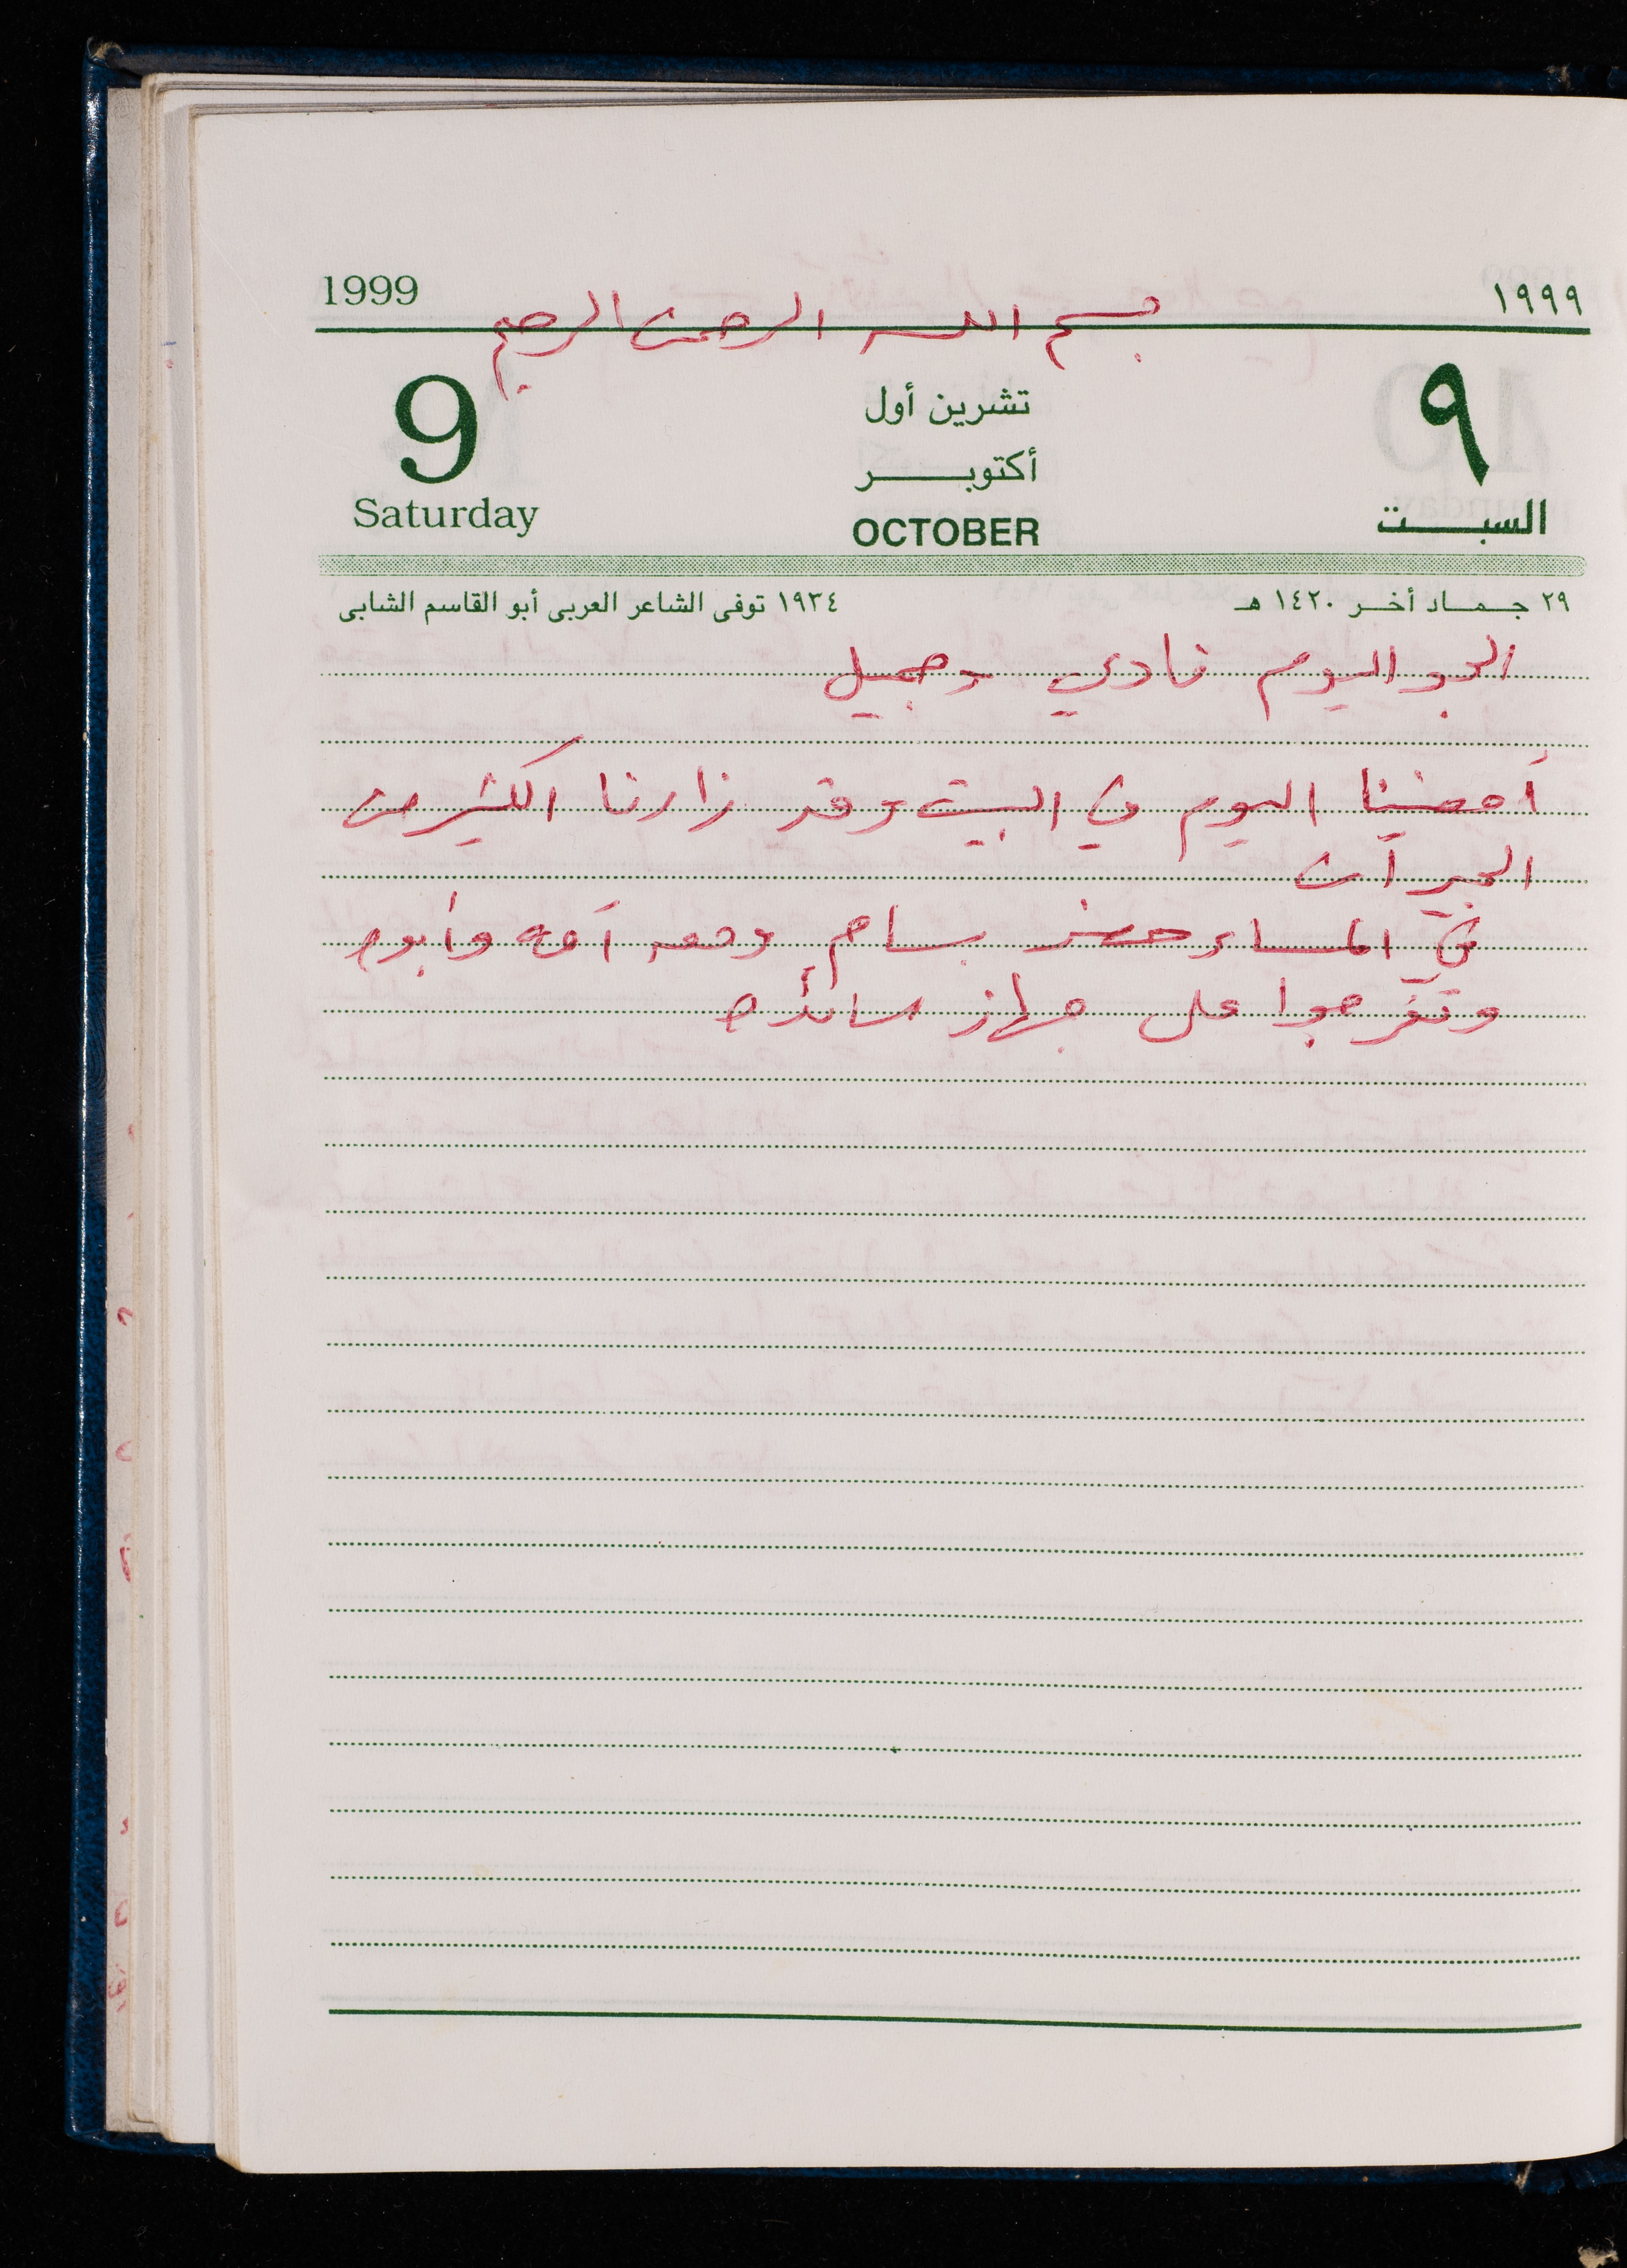 1999 ١٩٩٩
بسم الله الرحمن الرحيم
9 ٩
تشرين أول
أكتوبر
Saturday السبت
OCTOBER
٢٩ جماد أخر ١٤٢٠ هـ ١٩٣٤ توفى الشاعر العربى أبو القاسم الشابى
الجو اليوم نادي وجميل
أمضينا اليوم في البيت وقد زارنا الكثير من
الجيران
في المساء حضر بسام ومعه أمه وأبوه
وتفرجوا على جهاز سائده